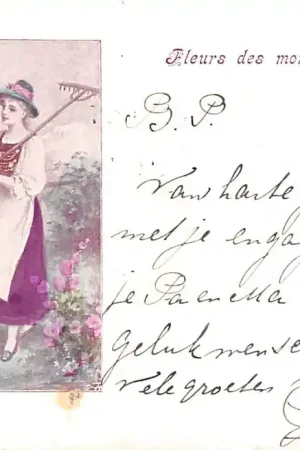 Fleurs des mon
B. P.
Van harte
met je engag
je Pa en Ma
geluk mense
Vele groeten